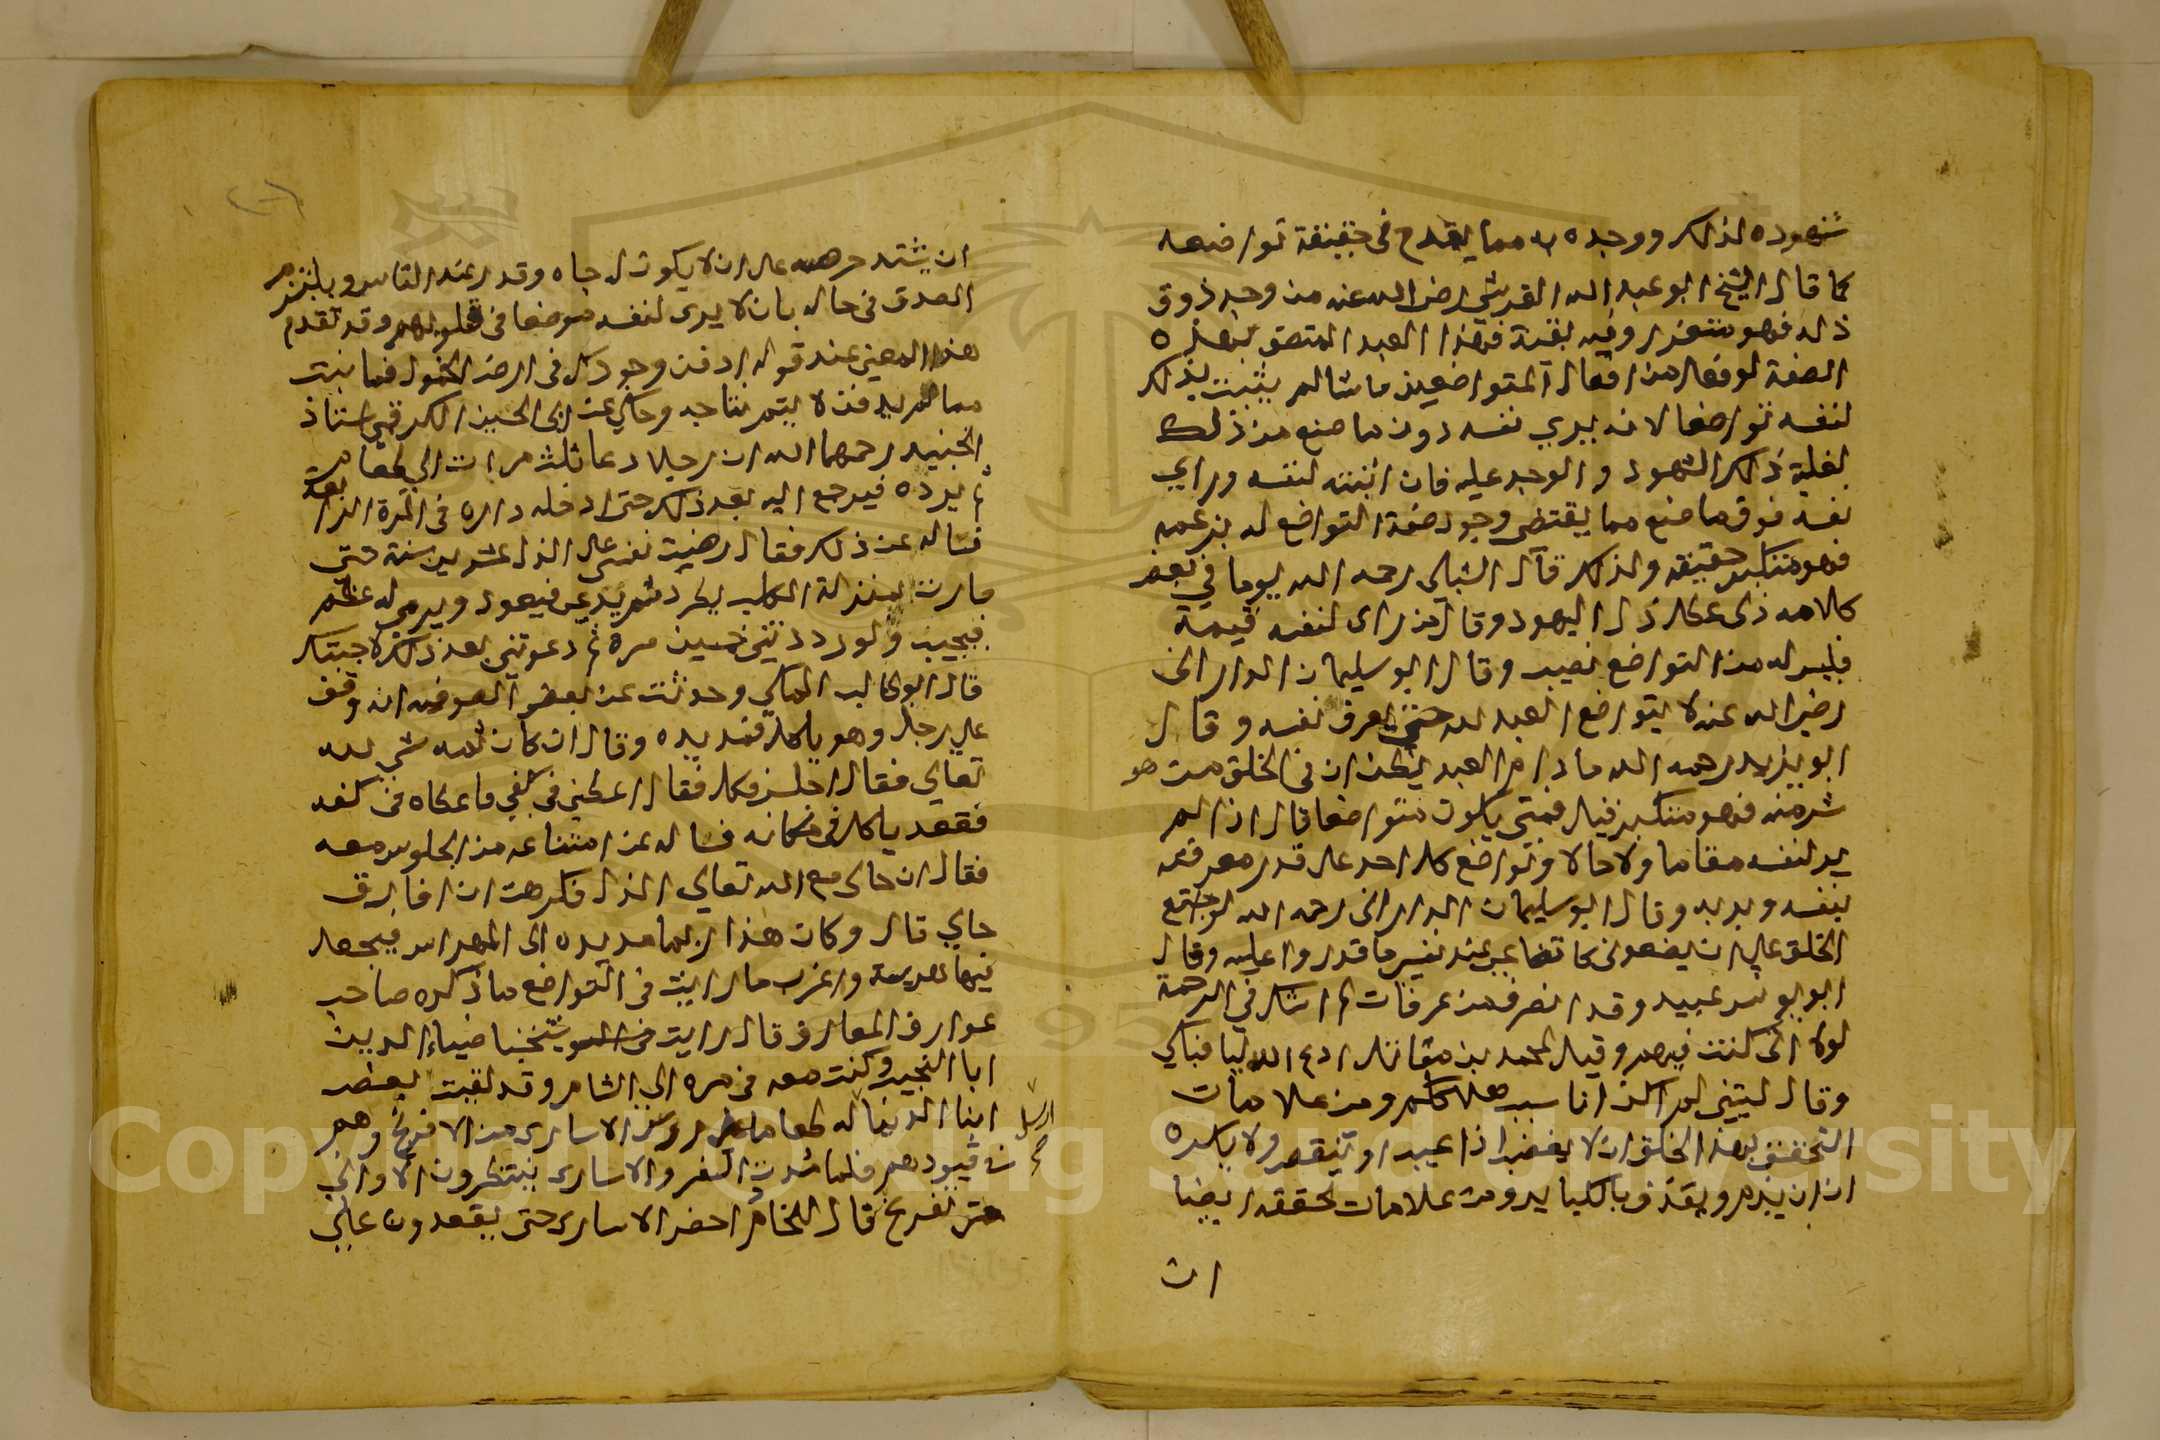 شهوده لذلك ووجده به مما يقدح في حقيقة تواضعه
كما قال الشيخ ابو عبد الله القرشي رضي الله عنه من وجد ذوق
ذله فهو متعزز وفيه بقية فهذا العبد المتصف بهذه
الصفة لو فعل من افعال المتواضعين ما شا لم يثبت بذلك
لنفسه تواضعا لانه يري نفسه دون ما صنع من ذلك
لغلبة ذلك الشهود والوجد عليه فان اثبته لنفسه وراي
نفسه فوق ما صنع مما يقتضي وجود صفة التواضع له بزعمه
فهو متكبر حقيقة ولذلك قال الشبلي رحمه الله يوما في بعض
كلامه ذلي عطل ذل اليهود وقال من راى لنفسه قيمة
فليس له من التواضع نصيب وقال ابو سليمان الداراني
رضي الله عنه لا يتواضع العبد لله حتى يعرف نفسه وقال
ابو يزيد رحمه الله ما دام العبد يظن ان في الخلق من هو
شر منه فهو متكبر قيل فمتى يكون متواضعا قال اذا لم
ير لنفسه مقاما ولا حالا وتواضع كل احد على قدر معرفته
بنفسه وبربه وقال ابو سليمان الداراني رحمه الله لو اجتمع
الخلق علي ان يضعوني كاتضاعي عند نفسي ما قدروا عليه وقال
ابو يونس عبيد وقد انصرف من عرفات لم اشك في الرحمة
لولا اني كنت فيهم وقيل لمحمد بن مقاتل ادع الله لنا فبكي
وقال ليتني لم اكن انا سبب هلاككم ومن علامات
التحقق بهذا الخلق ان لا يغضب اذا عيب او تنقص ولا يكره
ان يذم ويقذف بالكباير ومن علامات تحققه ايضا
ان
ان يشتد حرصه على ان لا يكون له جاه وقدر عند الناس ويلتزم
الصدق في حاله بان لا يرى لنفسه موضعا في قلوبهم وقد تقدم
هذا المعنى عند قوله ادفن وجودك في ارض الخمول فما نبت
مما لم يدفن لا يتم نتاجه وحكي عن ابي الحسين الكرقي استاذ
الجنيد رحمهما الله ان رجلا دعا ثلث مرات الي طعامه
ثم يرده فيرجع اليه بعد ذلك حتى ادخله داره في المرة الرابعة
فساله عن ذلك فقال رضيت نفسي على الذل عشرين سنة حتى
صارت بمنزلة الكلب يطرد ثم يدعى فيعود ويرمى له عظم
فيجيب ولو رددتني خمسين مرة ثم دعوتني بعد ذلك لاجبتك
قال ابو طالب المكي وحدثت عن بعض الصوفيه انه وقف
علي رجل وهو ياكل فمد يده وقال ان كان ثمه شي لله
تعالي فقال اجلس فكل فقال اعطني في كفي فاعطاه في كفه
فقعد ياكل في مكانه فساله عن امتناعه من الجلوس معه
فقال ان حالي مع الله تعالي الذل فكرهت ان افارق
حالي قال وكان هذا ربما مد يده الى الهراس فيجعل
فيها هريسة واغرب ما رايت في التواضع ما ذكره صاحب
عوارف المعارف قال رايت شيخنا ضياء الدين
ابا النجيب وكنت معه في سفره الى الشام وقد بعث بعض
ابنا الدنيا له طعاما على رؤس الاسارى من الافرنج وهم
في قيودهم فلما مدت السفر والاسارى ينتظرون الاواني
حتى تفرغ قال للخادم احضر الاسارى حتى يقعدون علي